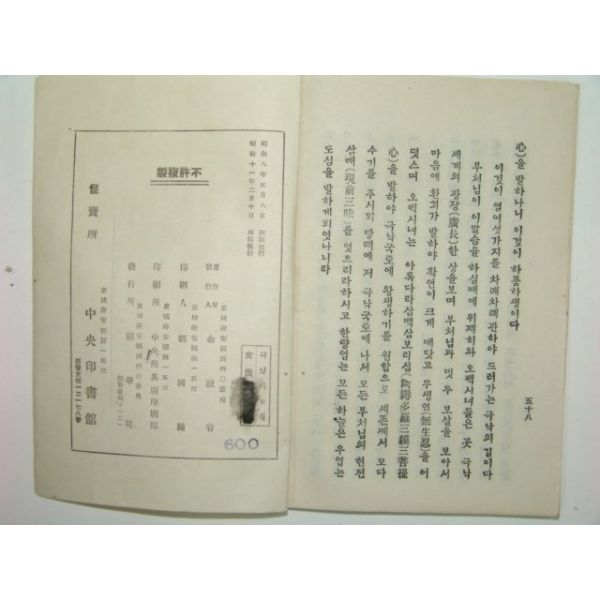 五十八
心)을 발하나니 이것이 하품하생이다
이것이 열여섯가지를 차례차례관하야 드러가는 극낙의길이다
부처님이 이말슴을 하실때에 위제히와 오백시녀들은 곳 극낙
세계의 광장(廣長)한 상을보며 부처님과 밋 두 보살을 보아서
마음에 환희가 발하야 확연이 크게 깨닷고 무생인(無生忍)을 어
덧스며 오백시녀는 아룩다라삼먁삼보리심(阿耨多羅三藐三菩提
心)을 발하야 극낙국토에 왕생하기를 원함으로 세존께서 모다
수기를 주시되 당래에 저 극낙국토에 나서 모든 부처님의 현전
삼매(現前三昧)를 엇으리라하시고 한량업는 모든 하늘은 우업는
도심을 발하게되엿나니라
定價
昭和八年五月八日 初版發行
昭和十一年三月十日 再版發行
不許複製
京城府安國洞四〇番地
發行人 金寂音
京城府安國洞一五三
印刷人 劉國鍾
京城府安國洞一五三
印刷所
發行所 禪學院
發賣所 中央印書館
京城府安國洞一五三
600